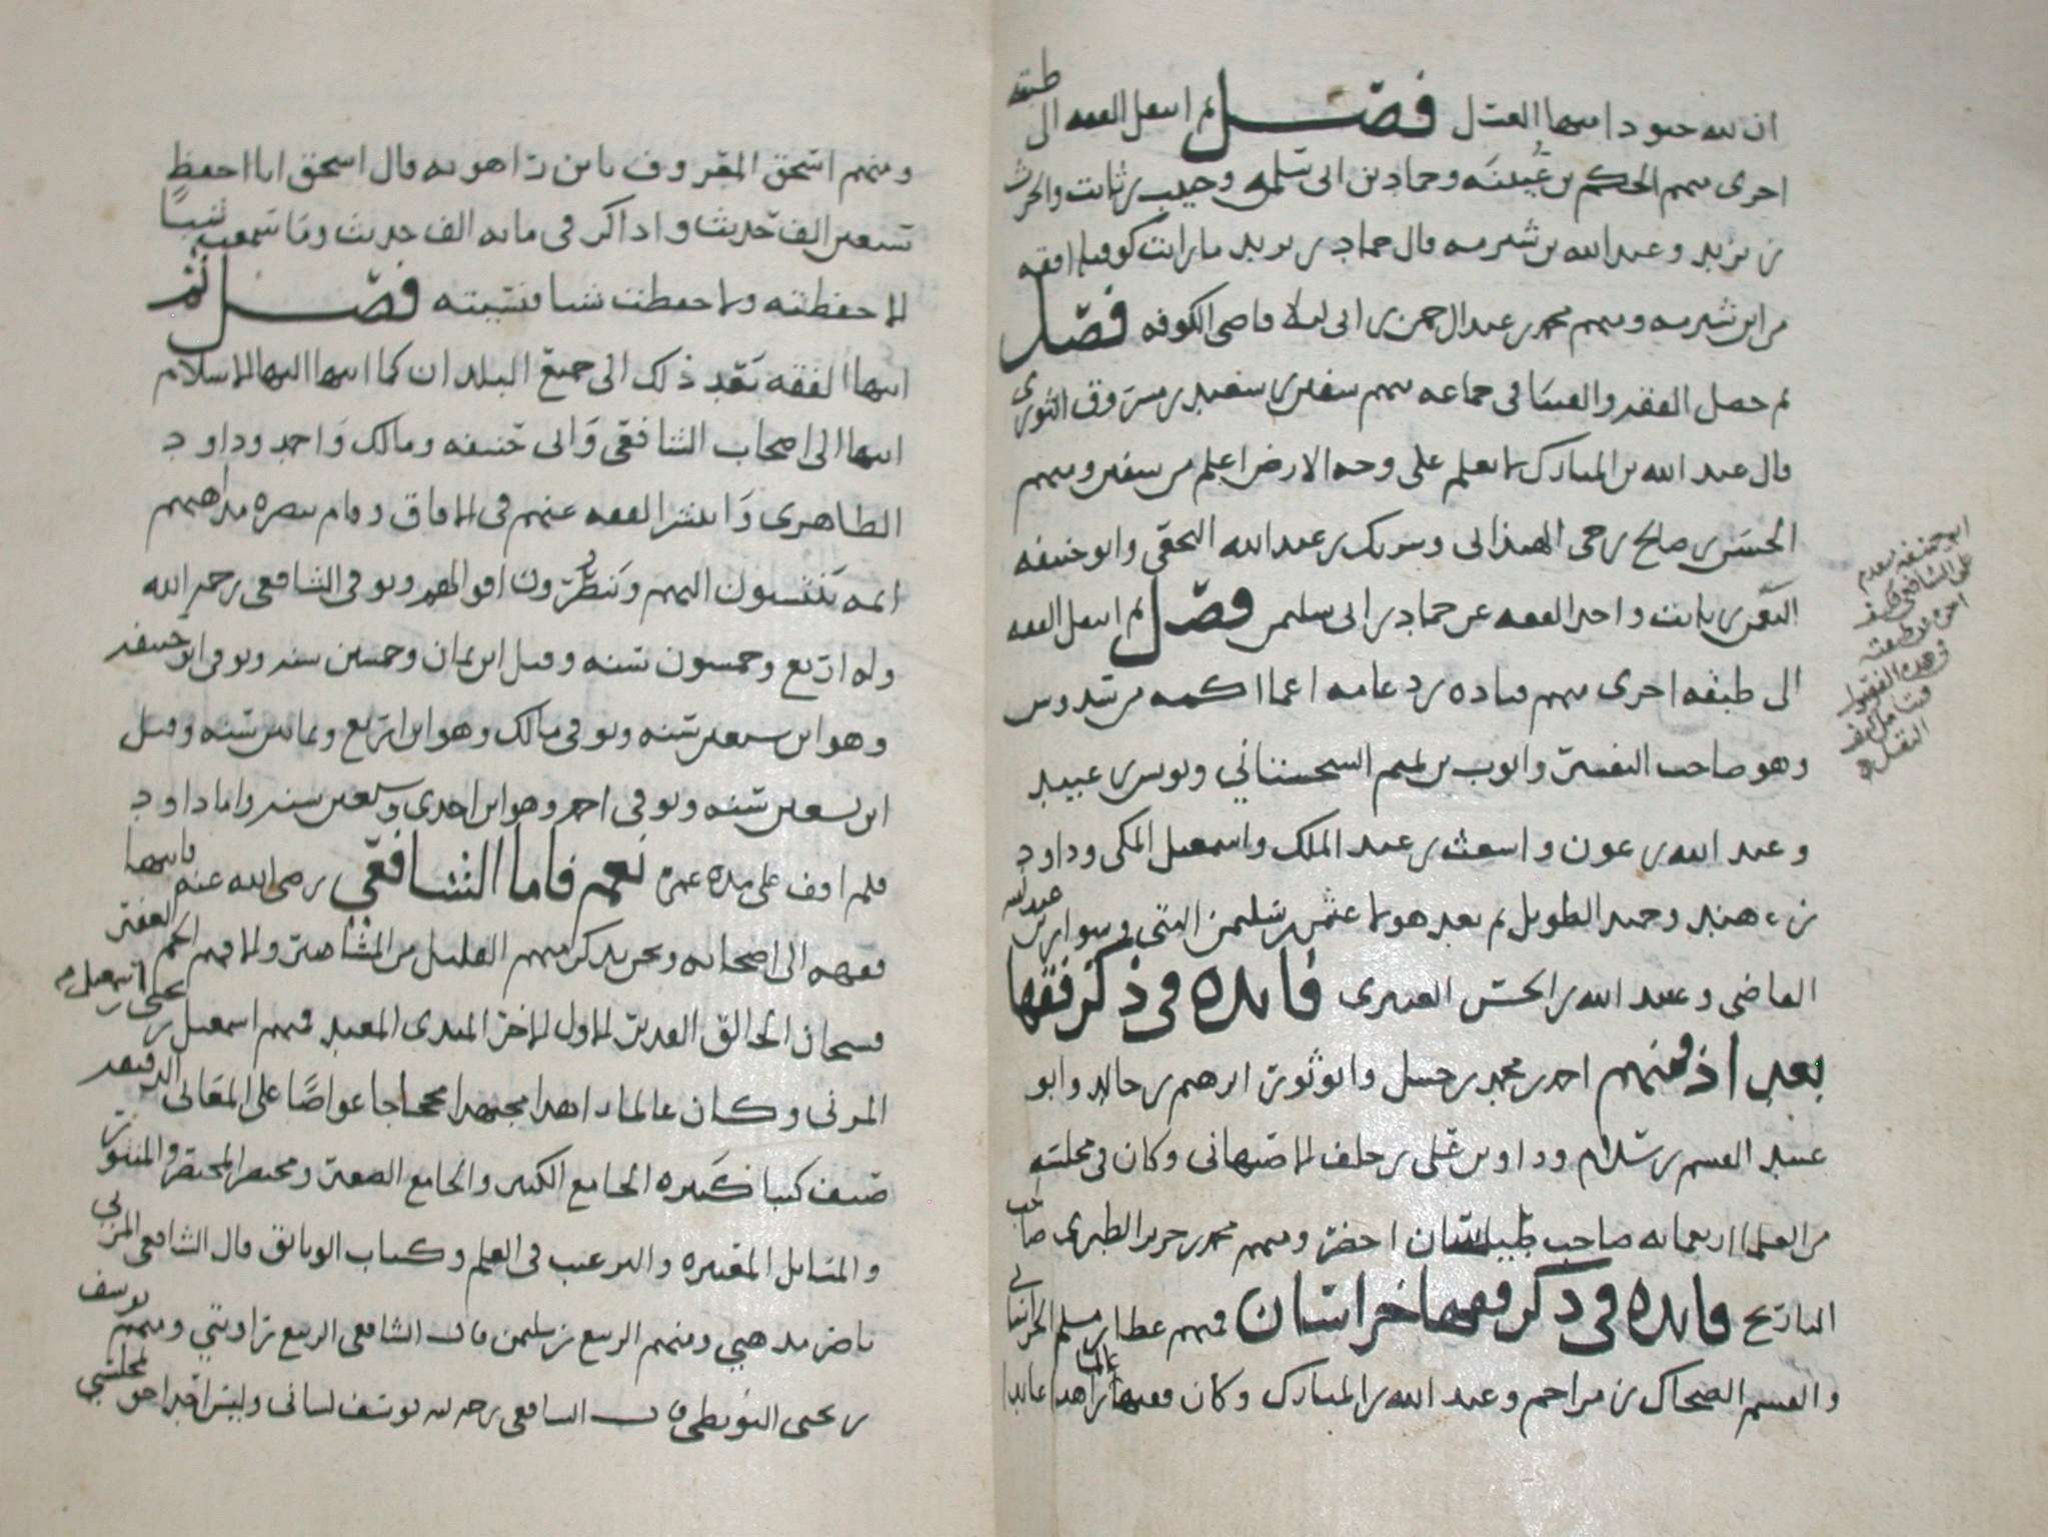 ان لله جنودا منها العسل فصل ثم انتقل الفقه الى طبقه
اخرى منهم الحكم بن عيينه وحماد بن ابي سلمه وحبيب بن ثابت والحرث
بن يزيد وعبد الله بن شبرمه قال حماد بن يزيد ما رايت كوفيا افقه
من ابن شبرمه ومنهم محمد بن عبد الرحمن بن ابي ليلا قاضي الكوفه فصل
ثم حصل الفقه والفتيا في جماعه منهم سفين بن سعيد بن مسروق الثوري
قال عبد الله بن المبارك لا نعلم على وجه الارض اعلم من سفين ومنهم
الحسن بن صالح بن حي الهمذاني وشريك بن عبد الله النخعي وابو حنيفه
النعمن بن ثابت واخذ الفقه عن حماد بن ابي سليمن فصل ثم انتقل الفقه
الى طبقه اخرى منهم قتاده بن دعامه اعما اكمه من سدوس
وهو صاحب التفسير وايوب بن تميم السحستاني ويونس بن عبيد
وعبد الله بن عون واشعث بن عبد الملك واسمعيل المكي وداود
بن هند وحميد الطويل ثم بعد هولا عثمن بن سليمن البتي وسوار بن عبد الله
القاضي وعبيد الله بن الحسن العنبري فايده في ذكر فقها
بغداد فمنهم احمد بن محمد بن حنبل وابو ثور ابرهيم بن خالد وابو
عبيد القسم بن سلام وداود بن علي بن خلف الاصبهاني وكان في مجلسه
من العلما اربعمايه صاحب طيلسان اخضر ومنهم محمد بن جرير الطبري صاحب
التاريخ فايده في ذكر فقها خراسان فمنهم عطا بن مسلم الخراساني
والقسم الضحاك بن مزاحم وعبد الله بن المبارك وكان فقيها عالما زاهدا عابدا
ابو حنيفه يقدم
على الشافعي فكيف
اخره بطبقته
في هذه الفصول
فتامل كيف
النقل
ومنهم اسحق المعروف بابن راهويه قال اسحق انا احفظ
تسعين الف حديث واذاكر في مايه الف حديث وما سمعت شيا
الا حفظته ولا حفظت شيا فنسيته فصل ثم
انتها الفقه بعد ذلك الى جميع البلدان كما انتها اليها الاسلام
انتها الى اصحاب الشافعي وابي حنيفه ومالك واحمد وداود
الظاهري وانتشر الفقه عنهم في الافاق وقام بنصره مذاهبهم
ايمه ينتسبون اليهم وينظرون اقوالهم وتوفي الشافعي رحمه الله
وله اربع وخمسون سنه وقيل ابن ثمان وخمسين سنه وتوفي ابو حنيفه
وهو ابن سبعين سنه وتوفي مالك وهو ابن اربع وثمانين سنه وقيل
ابن تسعين سنه وتوفي احمد وهو ابن احدى وسبعين سنه واما داود
فلم اقف على مده عمره نعم فاما الشافعي رضى الله عنه فانتها
فقهه الى اصحابه ونحن نذكر منهم القليل من المشاهير والا فهم الجم الغفير
فسبحان الخالق القدير الاول الاخر المبدي المعيد فمنهم اسمعيل بن يحيى بن اسمعيل
المزني وكان عالما زاهدا مجتهدا محجاجا غواصا على المعاني الدقيقه
صنف كتبا كثيره الجامع الكبير والجامع الصغير ومختصر المختصر والمنثور
والمسايل المعتبره والترغيب في العلم وكتاب الوثايق قال الشافعي المزني
ناصر مذهبي ومنهم الربيع بن سليمن قال الشافعي الربيع راويتي ومنهم يوسف
بن يحيى البويطي قال الشافعي رحمه الله يوسف لساني وليس احد احق بمجلسي